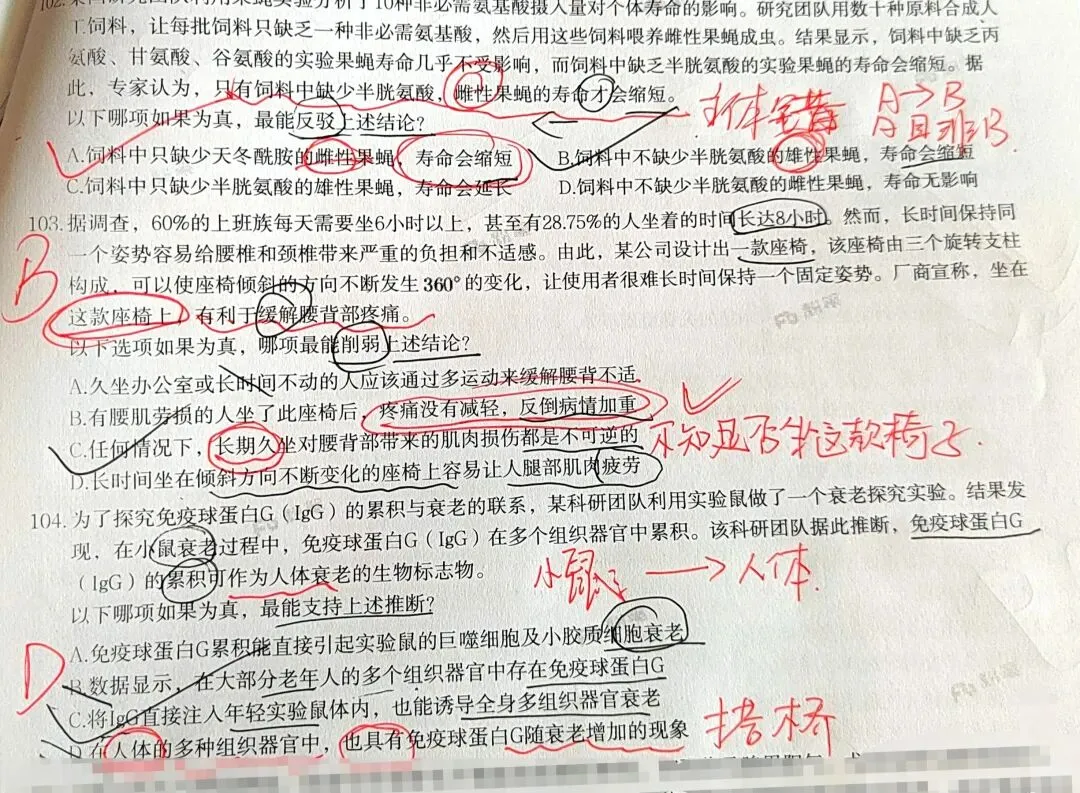 102.某国研究团队利用果蝇实验分析了10种非必需氨基酸摄入量对个体寿命的影响。研究团队用数十种原料合成人
工饲料，让每批饲料只缺乏一种非必需氨基酸，然后用这些饲料喂养雌性果蝇成虫。结果显示，饲料中缺乏丙
氨酸、甘氨酸、谷氨酸的实验果蝇寿命几乎不受影响，而饲料中缺乏半胱氨酸的实验果蝇的寿命会缩短。据
此，专家认为，只有饲料中缺少半胱氨酸，雌性果蝇的寿命才会缩短。
主体完替
A→B
A且非B
以下哪项如果为真，最能反驳上述结论？
A.饲料中只缺少天冬酰胺的雌性果蝇，寿命会缩短 B.饲料中不缺少半胱氨酸的雄性果蝇，寿命会缩短
C.饲料中只缺少半胱氨酸的雄性果蝇，寿命会延长 D.饲料中不缺少半胱氨酸的雌性果蝇，寿命无影响
103.据调查，60%的上班族每天需要坐6小时以上，甚至有28.75%的人坐着的时间长达8小时。然而，长时间保持同
B
一个姿势容易给腰椎和颈椎带来严重的负担和不适感。由此，某公司设计出一款座椅，该座椅由三个旋转支柱
构成，可以使座椅倾斜的方向不断发生360°的变化，让使用者很难长时间保持一个固定姿势。厂商宣称，坐在
这款座椅上，有利于缓解腰背部疼痛。
以下选项如果为真，哪项最能削弱上述结论？
A.久坐办公室或长时间不动的人应该通过多运动来缓解腰背不适
B.有腰肌劳损的人坐了此座椅后，疼痛没有减轻，反倒病情加重
C.任何情况下，长期久坐对腰背部带来的肌肉损伤都是不可逆的
不知是否坐这款椅子.
D.长时间坐在倾斜方向不断变化的座椅上容易让人腿部肌肉疲劳
104.为了探究免疫球蛋白G（IgG）的累积与衰老的联系，某科研团队利用实验鼠做了一个衰老探究实验。结果发
现，在小鼠衰老过程中，免疫球蛋白G（IgG）在多个组织器官中累积。该科研团队据此推断，免疫球蛋白G
（IgG）的累积可作为人体衰老的生物标志物。
小鼠子→人体.
以下哪项如果为真，最能支持上述推断？
A.免疫球蛋白G累积能直接引起实验鼠的巨噬细胞及小胶质细胞衰老
D
B.数据显示，在大部分老年人的多个组织器官中存在免疫球蛋白G
C.将IgG直接注入年轻实验鼠体内，也能诱导全身多组织器官衰老
D.在人体的多种组织器官中，也具有免疫球蛋白G随衰老增加的现象
搭桥